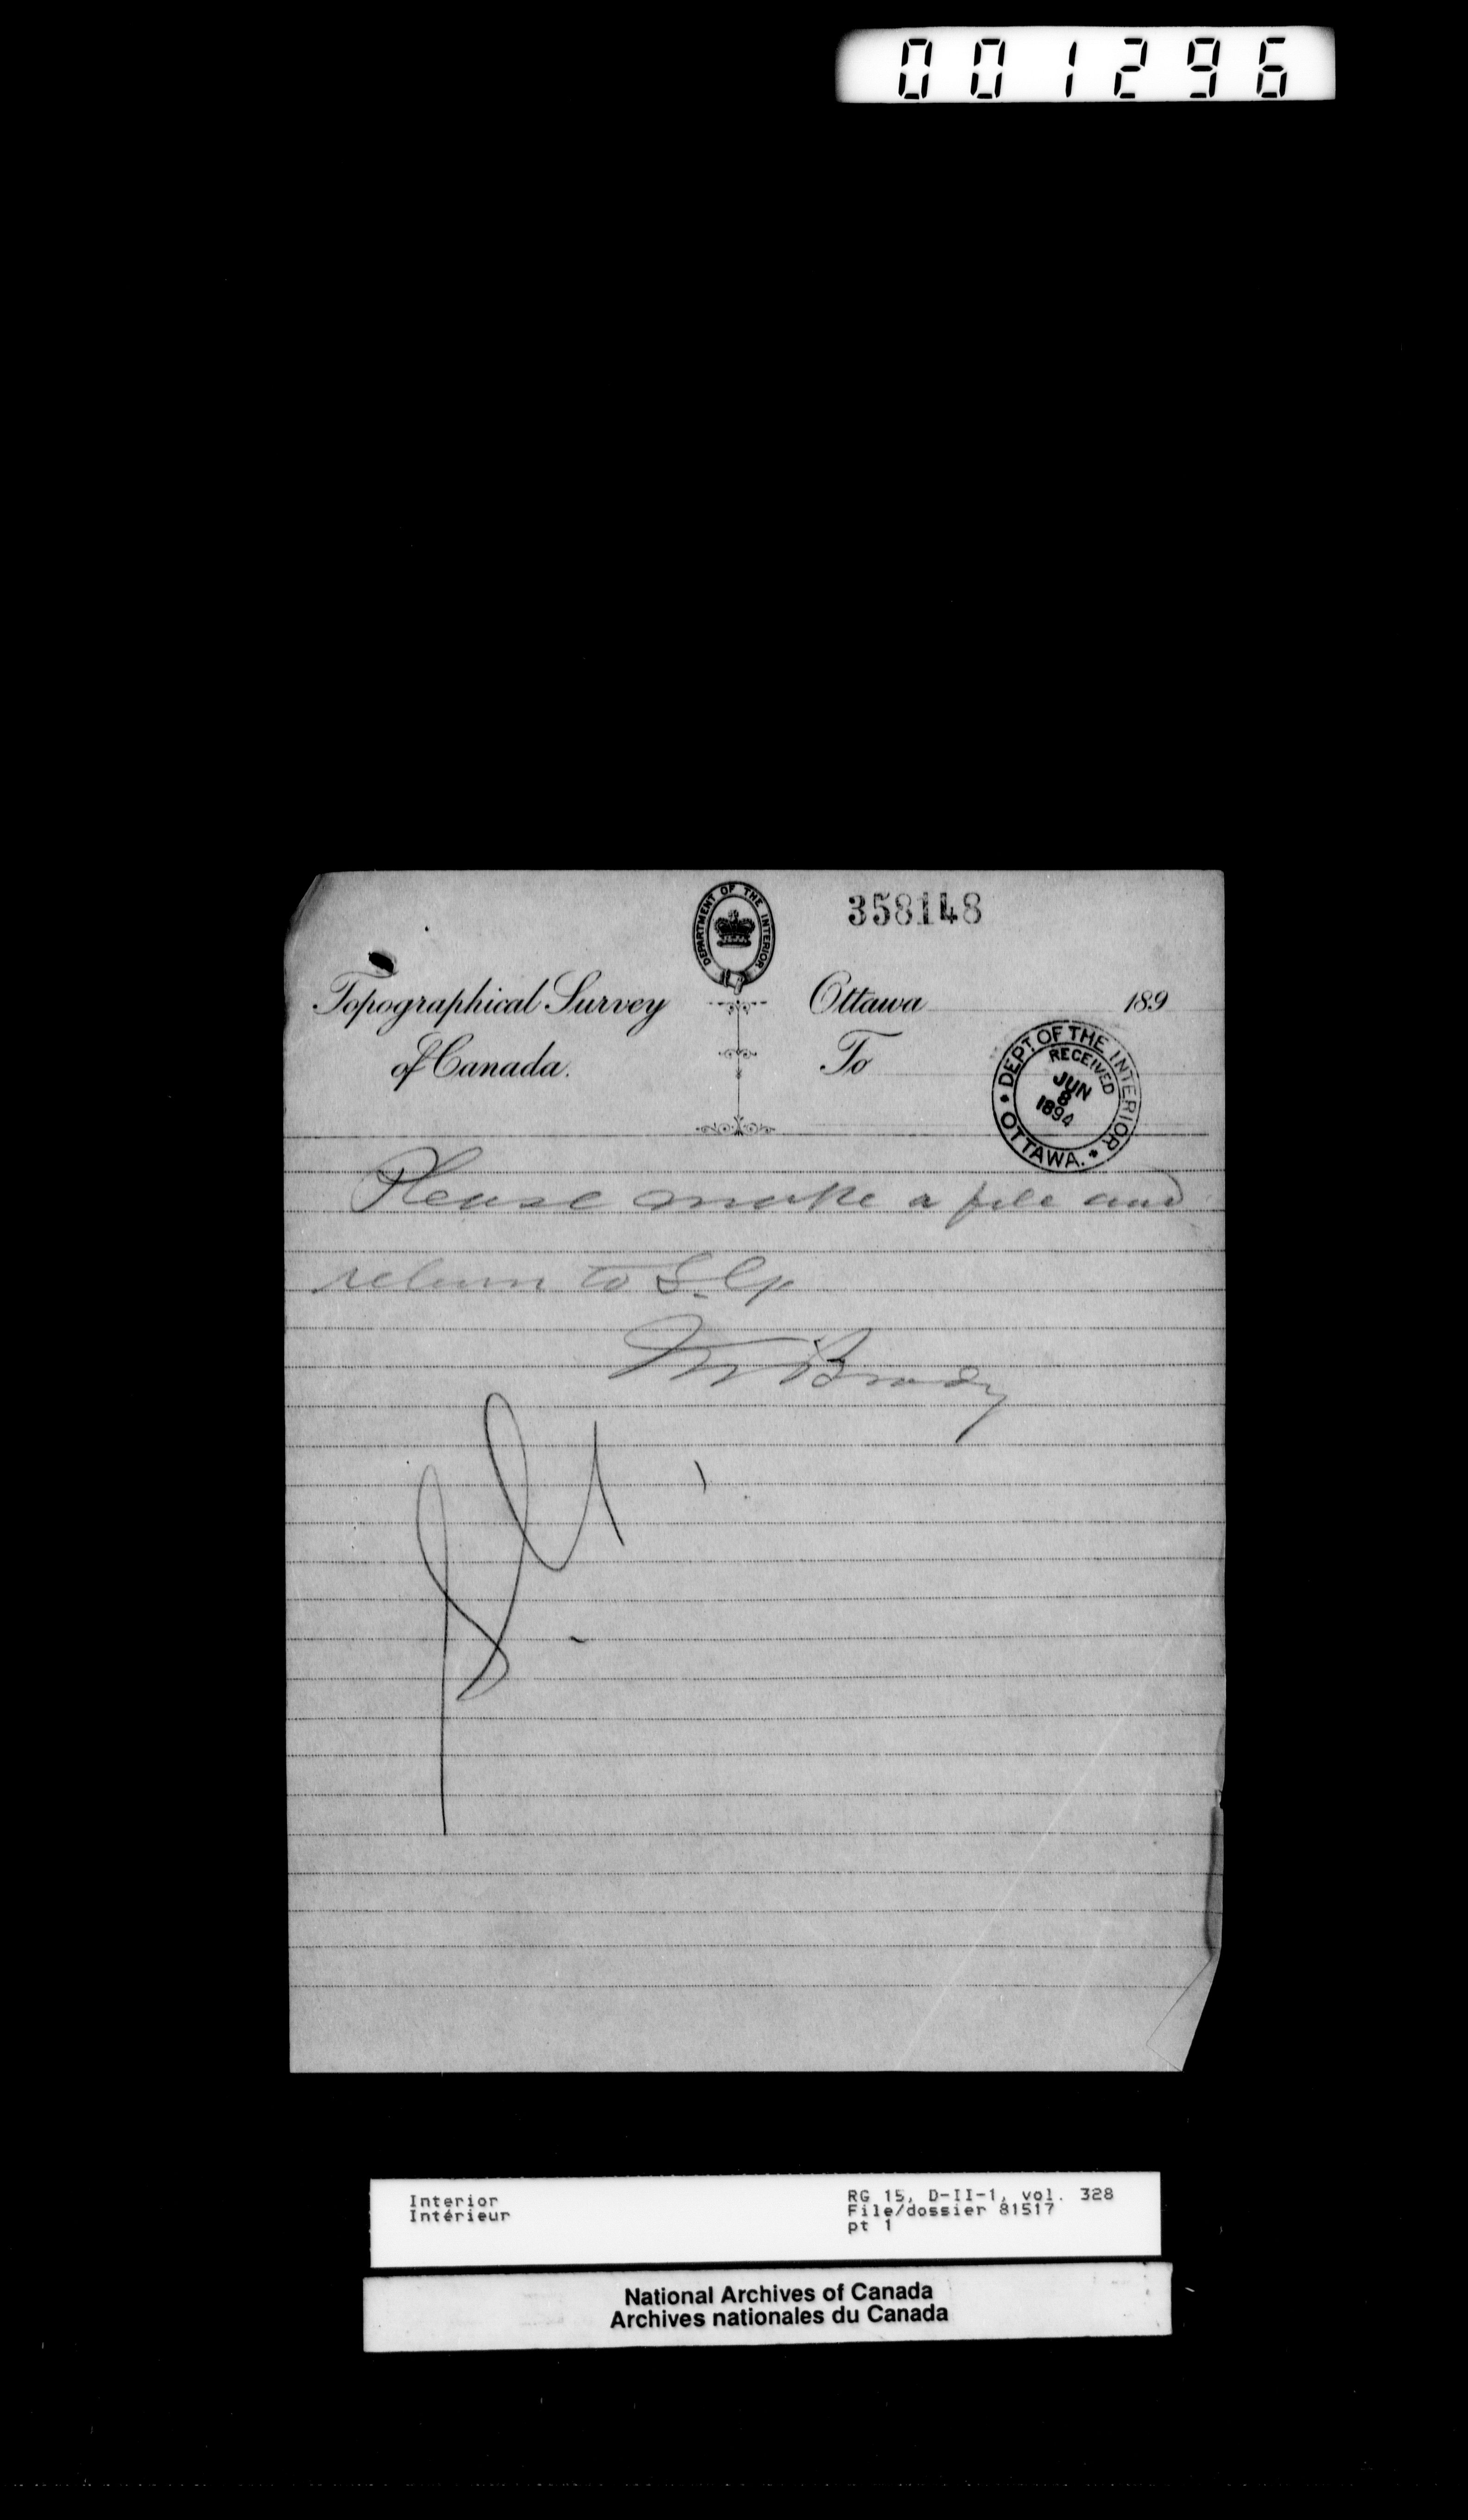 001296
358148
DEPARTMENT OF THE INTERIOR
Topographical Survey
of Canada.
Ottawa 189
To
DEPT. OF THE INTERIOR
RECEIVED
JUN
8
1894
OTTAWA.
Please make a file and
return to S. G.
Mr Brady
Interior
Intérieur
RG 15, D-II-1, vol. 328
File/dossier 81517
pt 1
National Archives of Canada
Archives nationales du Canada